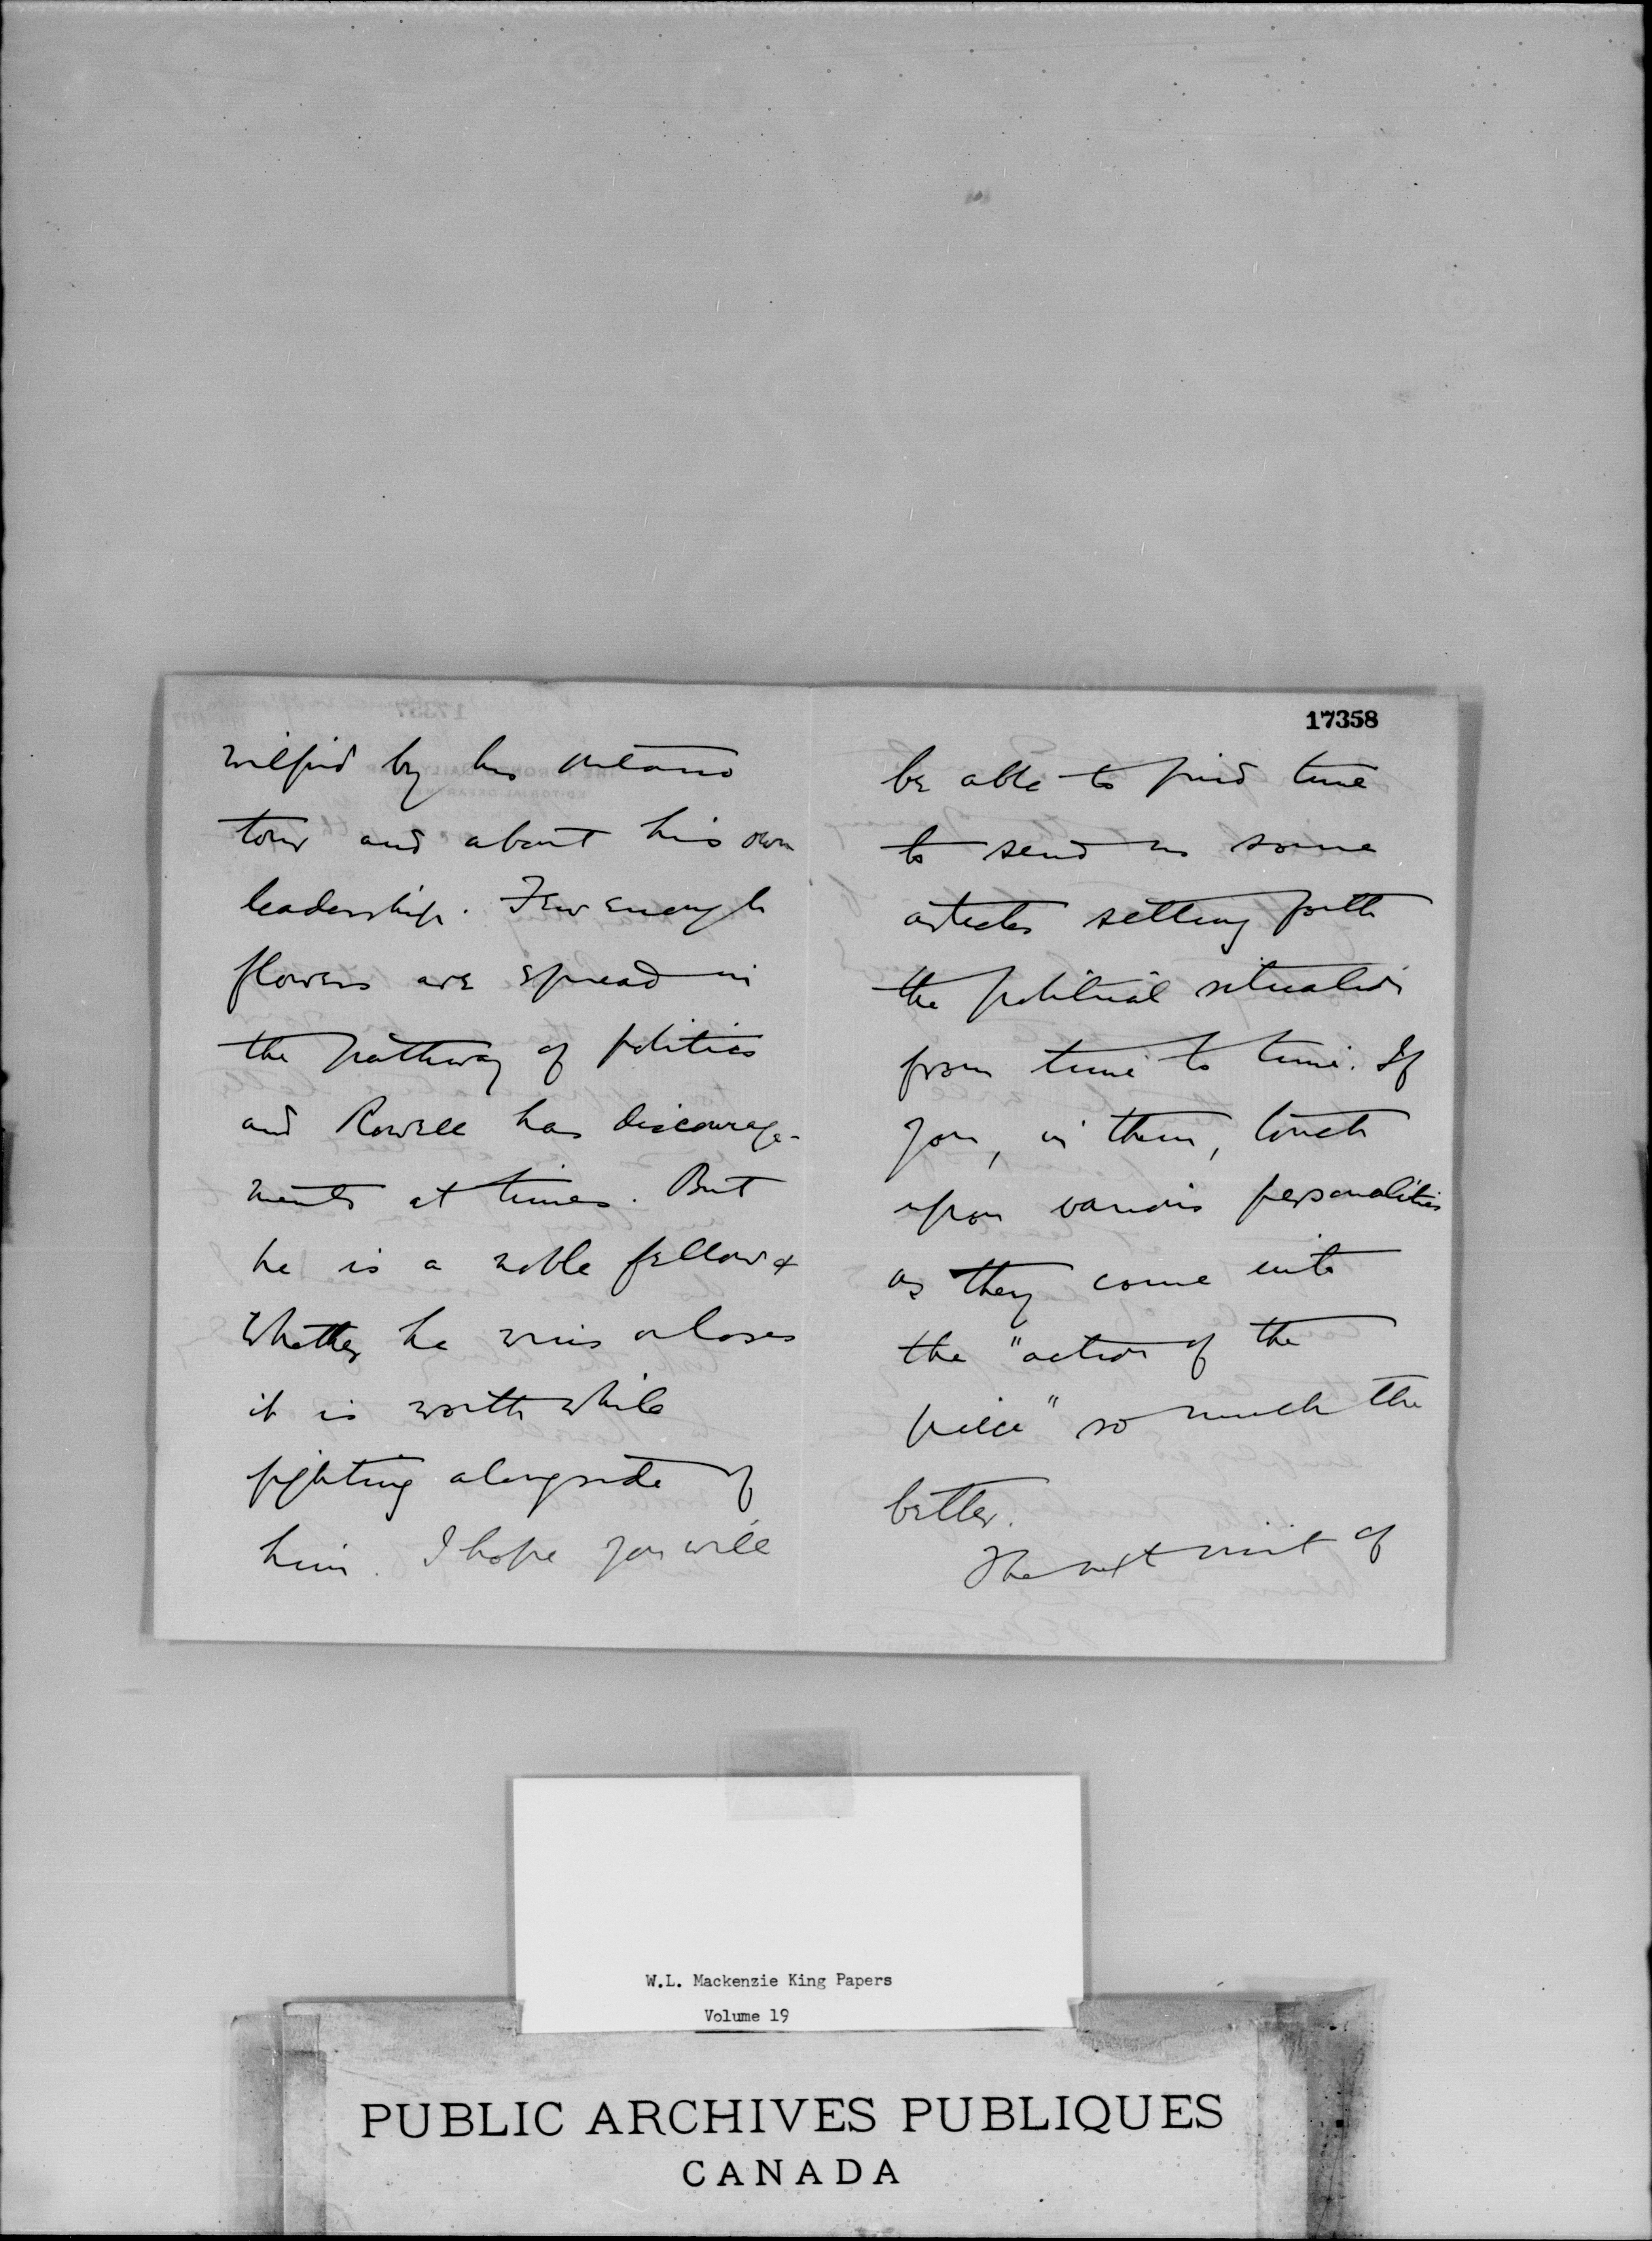 Wilfrid by his Ontario
tour and about his own
leadership. Few enough
flowers are spread in
the pathway of politics
and Rowell has discourage-
ments at times. But
he is a noble fellow &
whether he wins or loses
it is worth while
fighting alongside of
him. I hope you will
17358
be able to find time
to send us some
articles setting forth
the political situation
from time to time. If
you, in them, touch
upon various personalities
as they come into
the "action of the
piece" so much the
better.
The next visit of
W.L. Mackenzie King Papers
Volume 19
PUBLIC ARCHIVES PUBLIQUES
CANADA